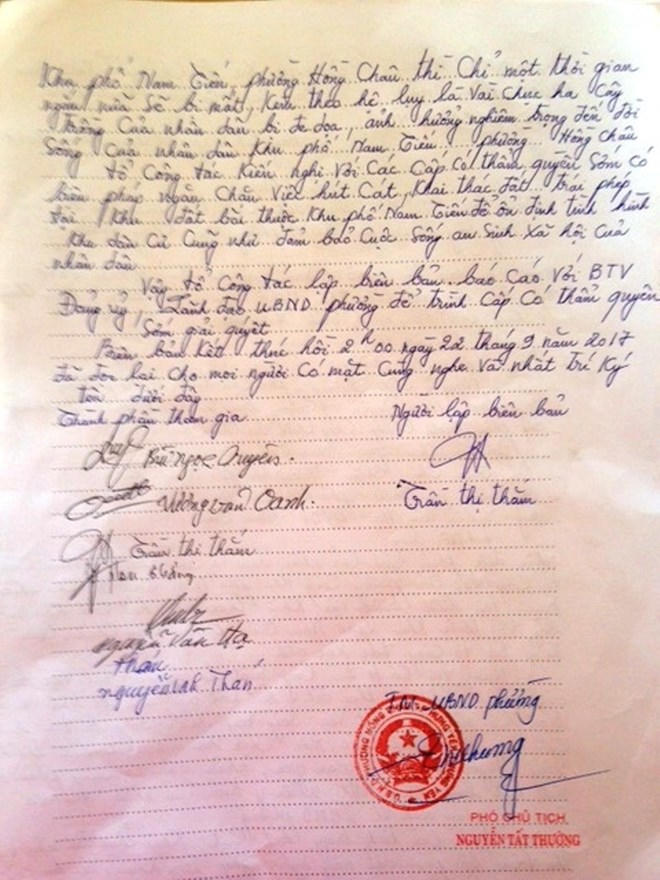 Khu phố Nam Tiến, phường Hồng Châu thì chỉ một thời gian
ngắn nữa sẽ bị mất, kèm theo hệ lụy là vài chục ha cây
trồng của nhân dân bị đe dọa, ảnh hưởng nghiêm trọng đến đời
sống của nhân dân khu phố Nam Tiến, phường Hồng Châu
Tổ công tác kiến nghị với các cấp có thẩm quyền sớm có
biện pháp ngăn chặn việc hút cát, khai thác đất trái phép
tại khu đất bãi thuộc khu phố Nam Tiến để ổn định tình hình
khu dân cư cũng như đảm bảo cuộc sống an sinh xã hội của
nhân dân
Vậy tổ công tác lập biên bản báo cáo với BTV
Đảng ủy, Lãnh đạo UBND phường để trình cấp có thẩm quyền
sớm giải quyết
Biên bản kết thúc hồi 2h00 ngày 22 tháng 9 năm 2017
đã đọc lại cho mọi người có mặt cùng nghe và nhất trí ký
tên dưới đây
Thành phần tham gia
Người lập biên bản
Ngọc
Vương Văn Oanh
Trần Thị Thắm
Trần Thị Thắm
Nguyễn Văn Hạ
Thái
Nguyễn Thái
T.M UBND phường
PHÓ CHỦ TỊCH
NGUYỄN TẤT THƯỞNG